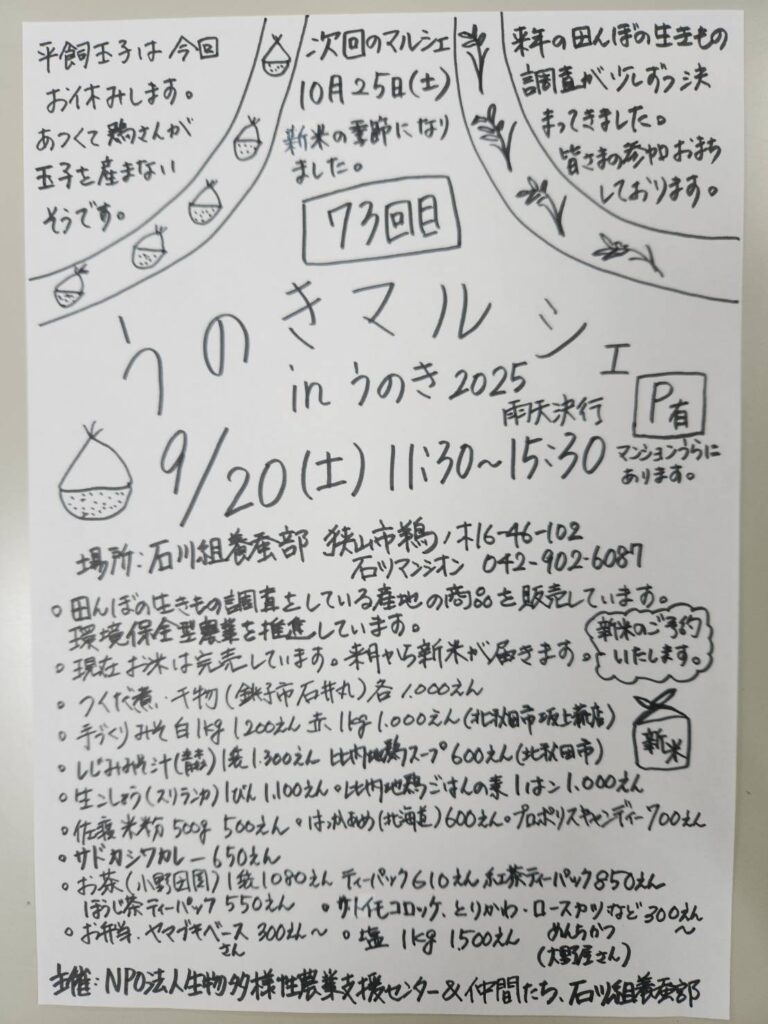 平飼玉子は今回
お休みします。
あつくて鶏さんが
玉子を産まない
そうです。
次回のマルシェ
10月25日(土)
新米の季節になり
ました。
来年の田んぼの生きもの
調査が少しずつ決
まってきました。
皆さまの参加おまち
しております。
73回目
うのきマルシェ
in うのき2025
雨天決行
P有
マンションうらに
あります。
9/20(土) 11:30~15:30
場所:石川組養蚕部 狭山市鵜ノ木16-46-102
石川マンシオン 042-902-6087
○田んぼの生きもの調査をしている産地の商品を販売しています。
環境保全型農業を推進しています。
○現在お米は完売しています。来月から新米が届きます。
新米のご予約
いたします。
・つくだ煮・干物(銚子市石井丸)各1.000えん
・手づくりみそ白1kg 1200えん 赤1kg 1.000えん(北秋田市坂上薪店)
新米
・しじみみそ汁(青森)1袋1.300えん 比内地鶏スープ600えん(北秋田市)
・生こしょう(スリランカ)1びん1.100えん・比内地鶏ごはんの素1はこ1.000えん
・佐渡米粉500g 500えん・はっかあめ(北海道)600えん・プロポリスキャンディー700えん
・サドカシワカレー650えん
・お茶(小野田園)1袋1080えん ティーパック610えん 紅茶ティーパック850えん
ほうじ茶ティーパック550えん
・サトイモコロッケ、とりかわ・ロースカツなど300えん~
めんちかつ
(大野屋さん)
・お弁当、ヤマブキベースさん 300えん~
・塩 1kg 1500えん
主催:NPO法人生物多様性農業支援センター&仲間たち、石川組養蚕部